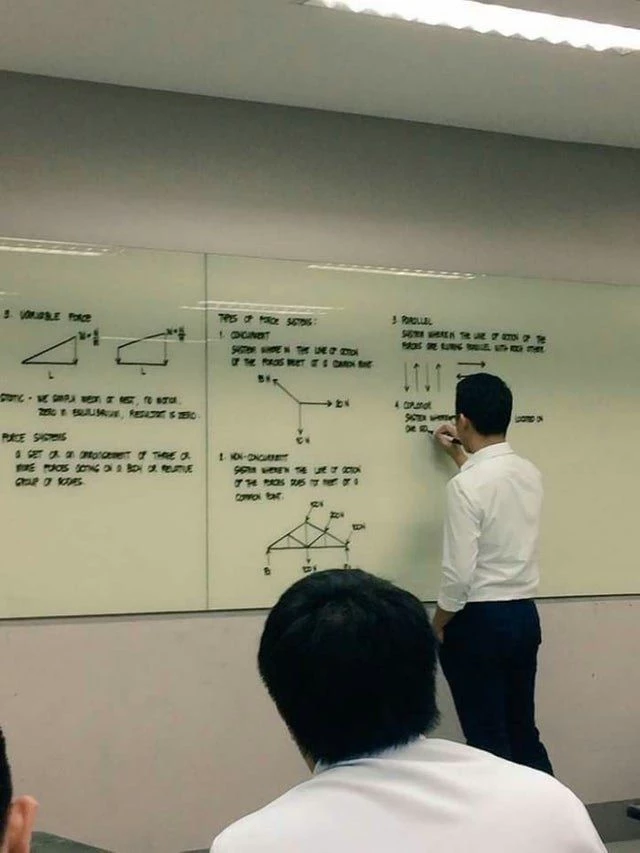 3. VARIABLE FORCE
L
L
STATIC - WE SIMPLY MEAN AT REST, NO MOTION.
ZERO IN EQUILIBRIUM, RESULTANT IS ZERO.
FORCE SYSTEMS
A SET OR AN ARRANGEMENT OF THREE OR
MORE FORCES ACTING ON A BODY OR RELATIVE
GROUP OF BODIES.
TYPES OF FORCE SYSTEMS:
1. CONCURRENT
SYSTEM WHERE IN THE LINE OF ACTION
OF THE FORCES MEET AT A COMMON POINT.
15 N
20 N
10 N
2. NON-CONCURRENT
SYSTEM WHEREIN THE LINE OF ACTION
OF THE FORCES DOES NOT MEET AT A
COMMON POINT.
100N
200N
100N
100N
3. PARALLEL
SYSTEM WHEREIN THE LINE OF ACTION OF THE
FORCES ARE RUNNING PARALLEL WITH EACH OTHER.
4. COPLANAR
SYSTEM LOCATED IN
ONE